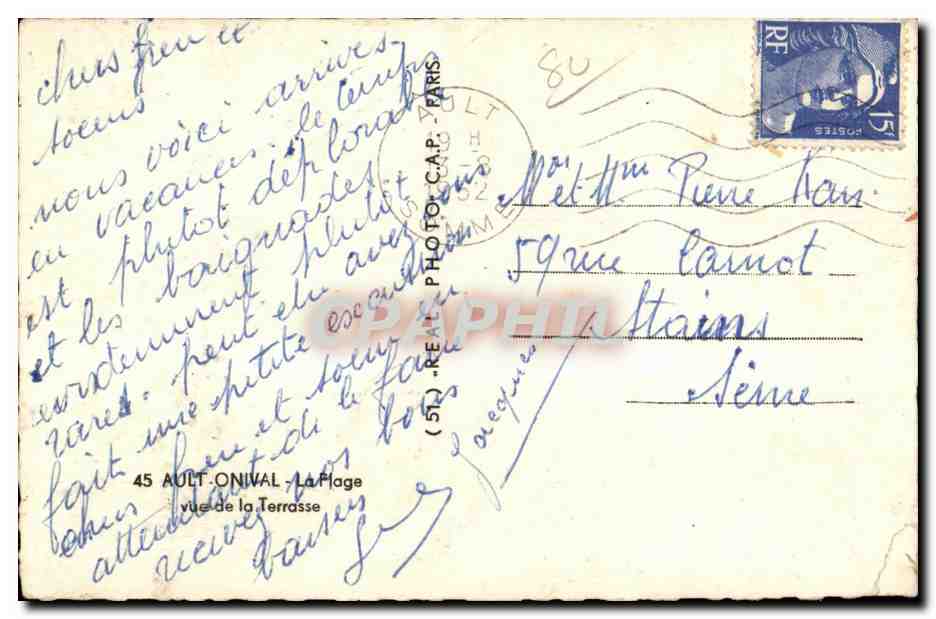 chers frère et
soeurs
nous voici arrivés
en vacances. le temps
est plutot déplorable
et les baignades
evidemment plutot
rares. peut etre avez vous
fait une petite escapade
chers frère et soeur en
attendant de le faire
recevez nos bons
baisers
Jacques
45 AULT-ONIVAL - La Plage
vue de la Terrasse
(51) "REAL-PHOTO" C.A.P. - PARIS
AULT
19 H
4-8
1952
SOMME
80
RF
POSTES
15F
Mr et Mme Pierre
59 rue Carnot
Stains
Seine
CPAPHIL